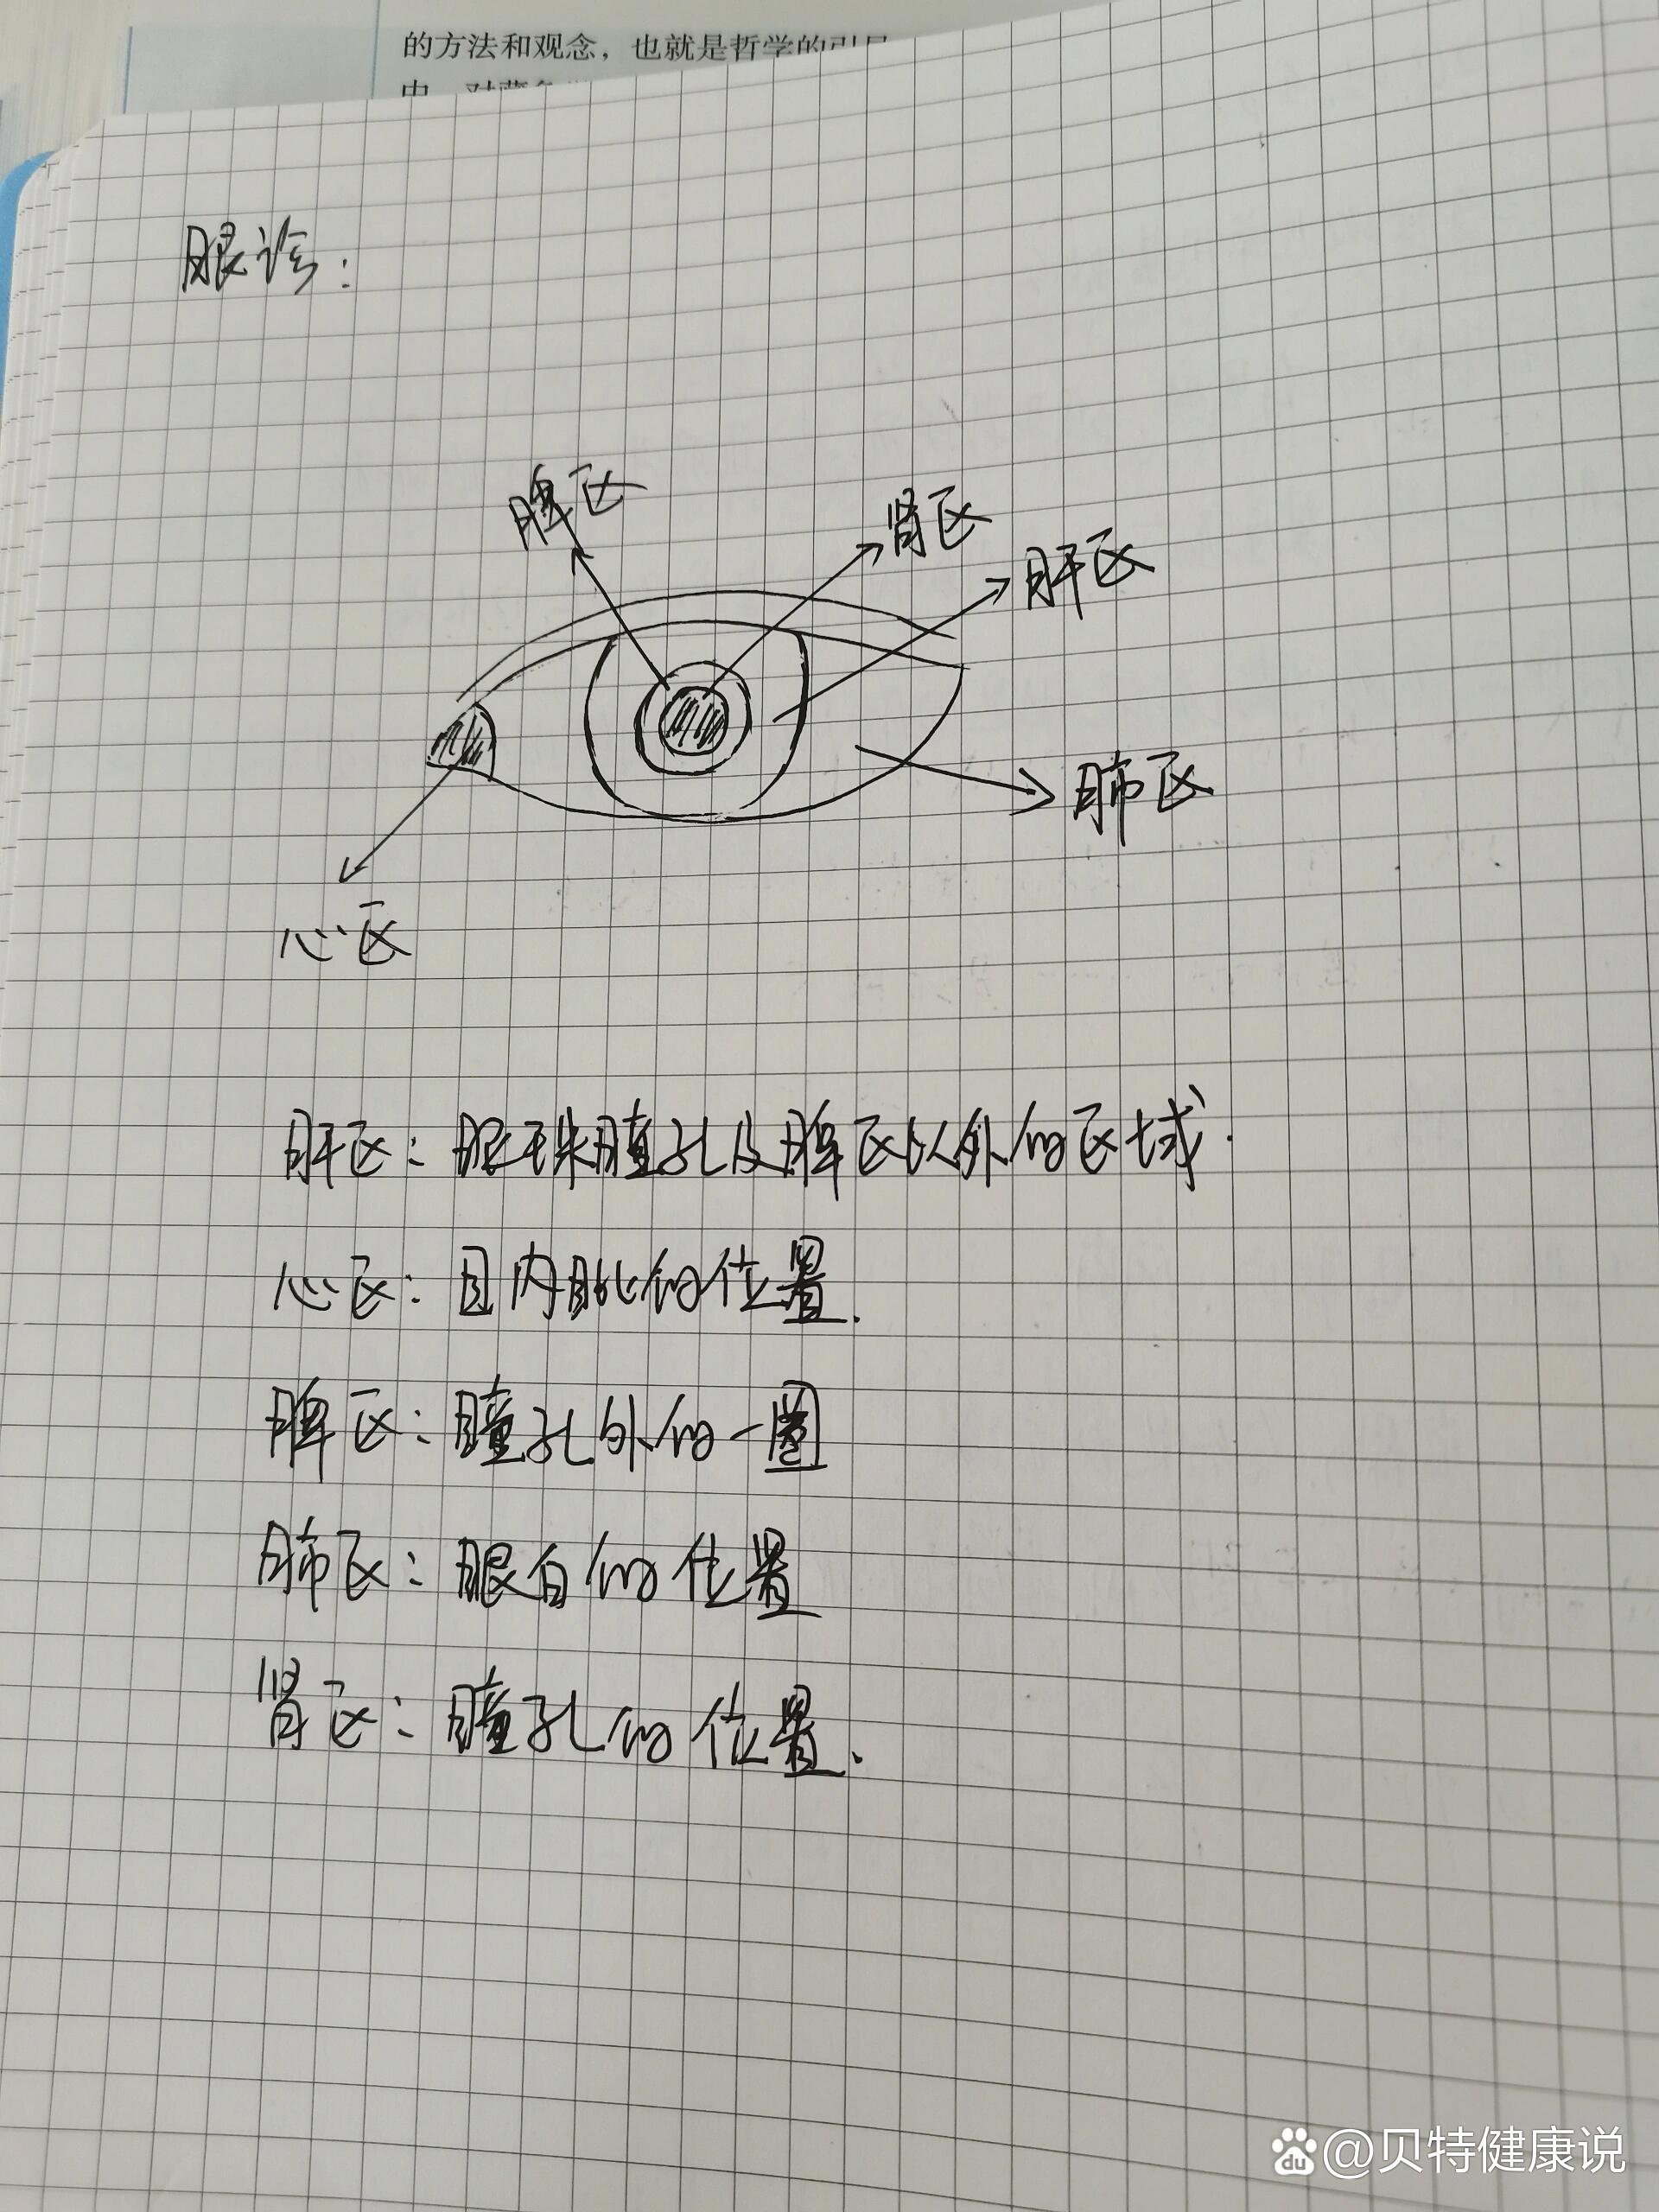 的方法和观念，也就是哲学的引导
中，对藏象
眼诊：
脾区
肾区
肝区
肺区
心区
肝区：眼珠瞳孔及脾区以外的区域.
心区：目内眦的位置.
脾区：瞳孔外的一圈
肺区：眼白的位置
肾区：瞳孔的位置.
du @贝特健康说